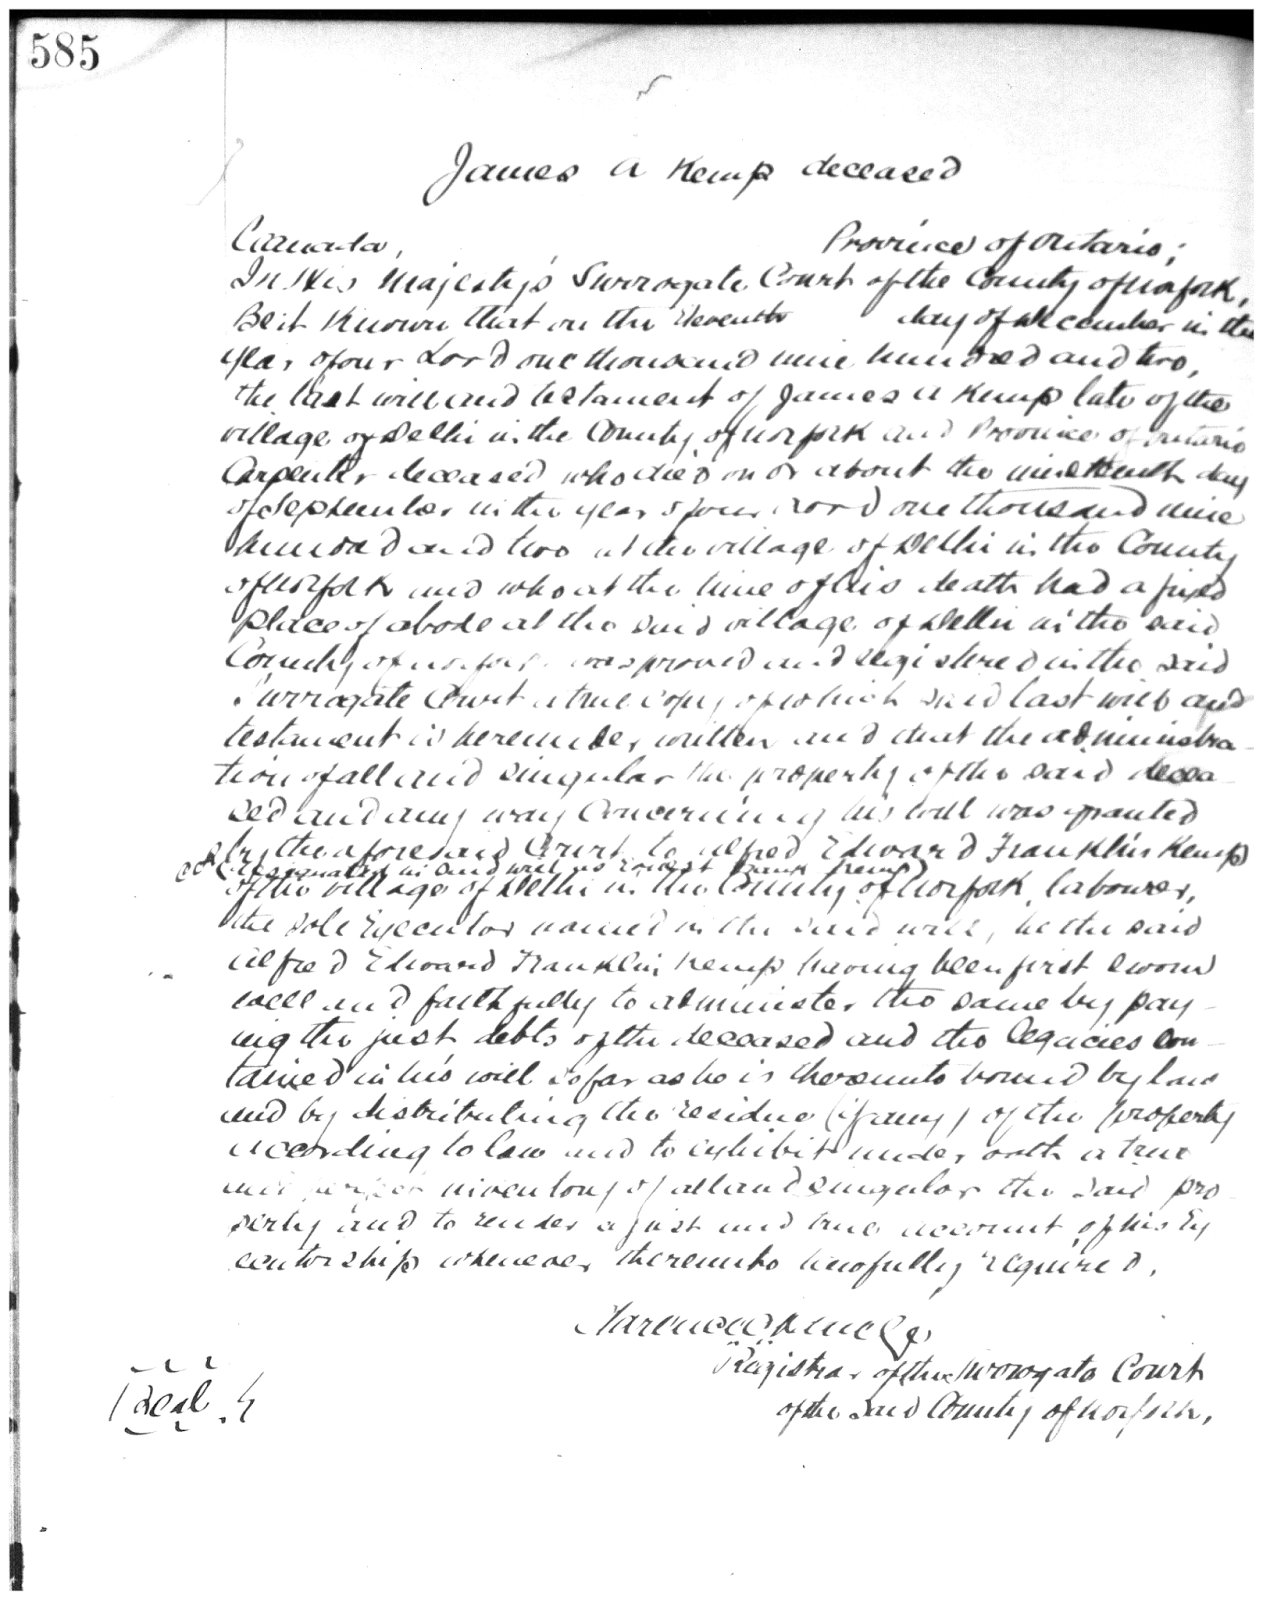 585
James A Kemp deceased
Canada, Province of Ontario;
In His Majesty's Surrogate Court of the County of Norfolk,
Be it Known that on the Eleventh day of December in the
year of our Lord one thousand nine hundred and two,
the last will and testament of James A Kemp late of the
village of Delhi in the County of Norfolk and Province of Ontario
Carpenter deceased who died on or about the nineteenth day
of September in the year of our Lord one thousand nine
hundred and two at the village of Delhi in the County
of Norfolk and who at the time of his death had a fixed
place of abode at the said village of Delhi in the said
County of Norfolk was proved and registered in the said
Surrogate Court a true copy of which said last will and
testament is hereunder written and that the administra-
tion of all and singular the property of the said decea-
sed and any way Concerning his will was granted
by the aforesaid Court to Alfred Edward Franklin Kemp
designated in said will as Frank Kemp
of the village of Delhi in the County of Norfolk, labourer,
the sole Executor named in the said will, he the said
Alfred Edward Franklin Kemp having been first sworn
well and faithfully to administer the same by pay-
ing the just debts of the deceased and the legacies con-
tained in his will so far as he is thereunto bound by law
and by distributing the residue (if any) of the property
according to law and to exhibit under oath a true
and perfect inventory of all and singular the said pro
perty and to render a just and true account of his Ex
ecutorship whenever thereunto lawfully required.
Registrar of the Surrogate Court
of the said County of Norfolk.
(Seal.)